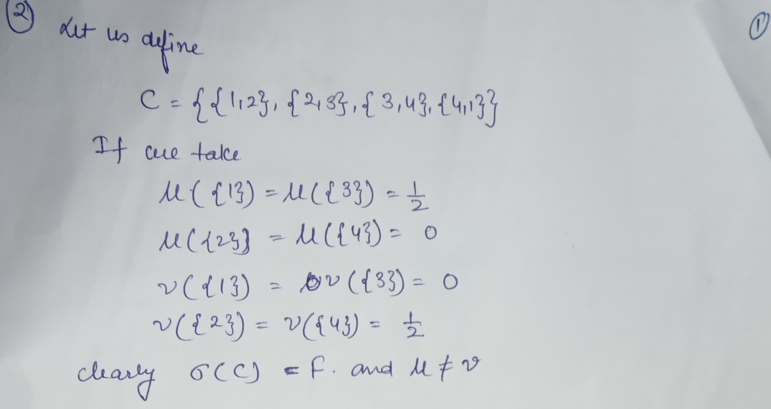 ② Let us define
①
C = {{1,2}, {2,3}, {3,4}, {4,1}}
If we take
μ({1}) = μ({3}) = 1/2
μ({2}) = μ({4}) = 0
ν({1}) = ν({3}) = 0
ν({2}) = ν({4}) = 1/2
clearly σ(C) = F. and μ ≠ ν